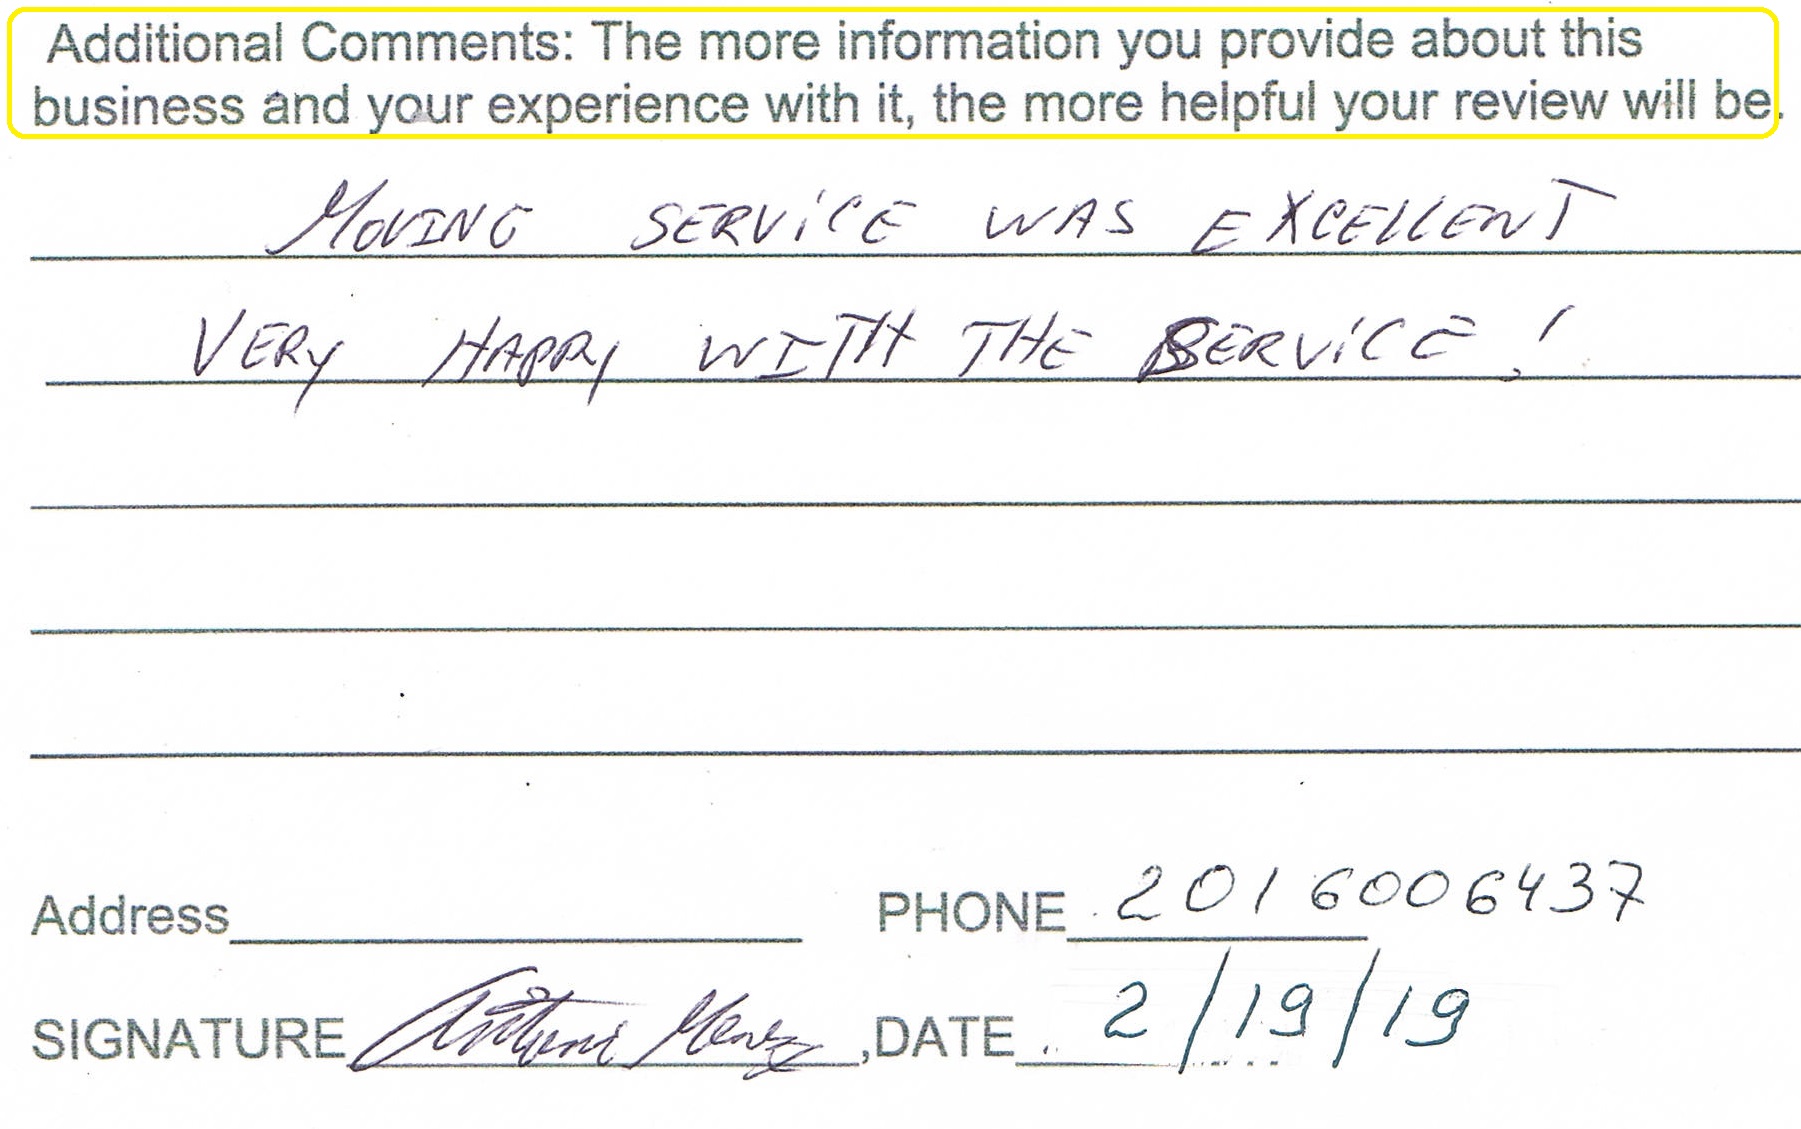 Additional Comments: The more information you provide about this
business and your experience with it, the more helpful your review will be.
MOVING SERVICE WAS EXCELLENT
VERY HAPPY WITH THE SERVICE!
Address PHONE 2016006437
SIGNATURE ,DATE 2/19/19